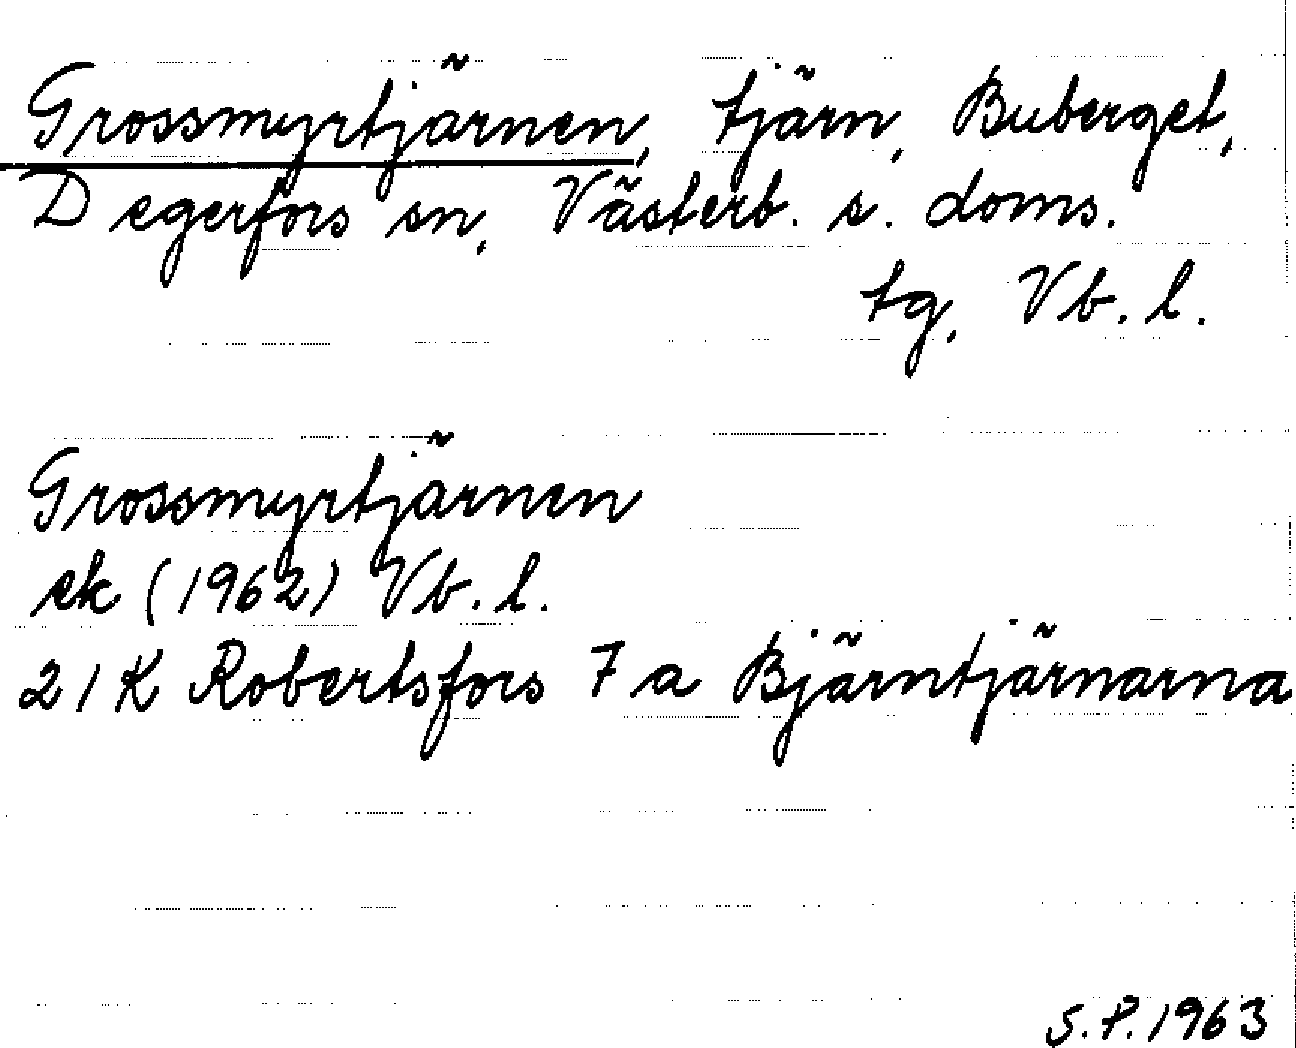 Grossmyrtjärnen, tjärn, Buberget,
Degerfors sn, Västerb. s. doms.
tg, Vb. l.
Grossmyrtjärnen
ek (1962) Vb. l.
21K Robertsfors 7a Bjärntjärnarna
S.P. 1963